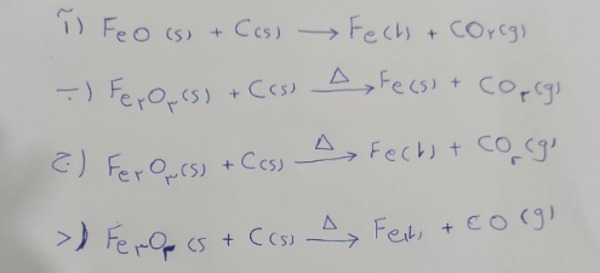 آ) FeO (s) + C(s) → Fe(l) + CO۲(g)
ب) Fe۲O۳(s) + C(s) —Δ→ Fe(s) + CO۲(g)
ج) Fe۲O۳(s) + C(s) —Δ→ Fe(l) + CO۲(g)
د) Fe۳O۴(s + C(s) —Δ→ Fe(l) + CO(g)